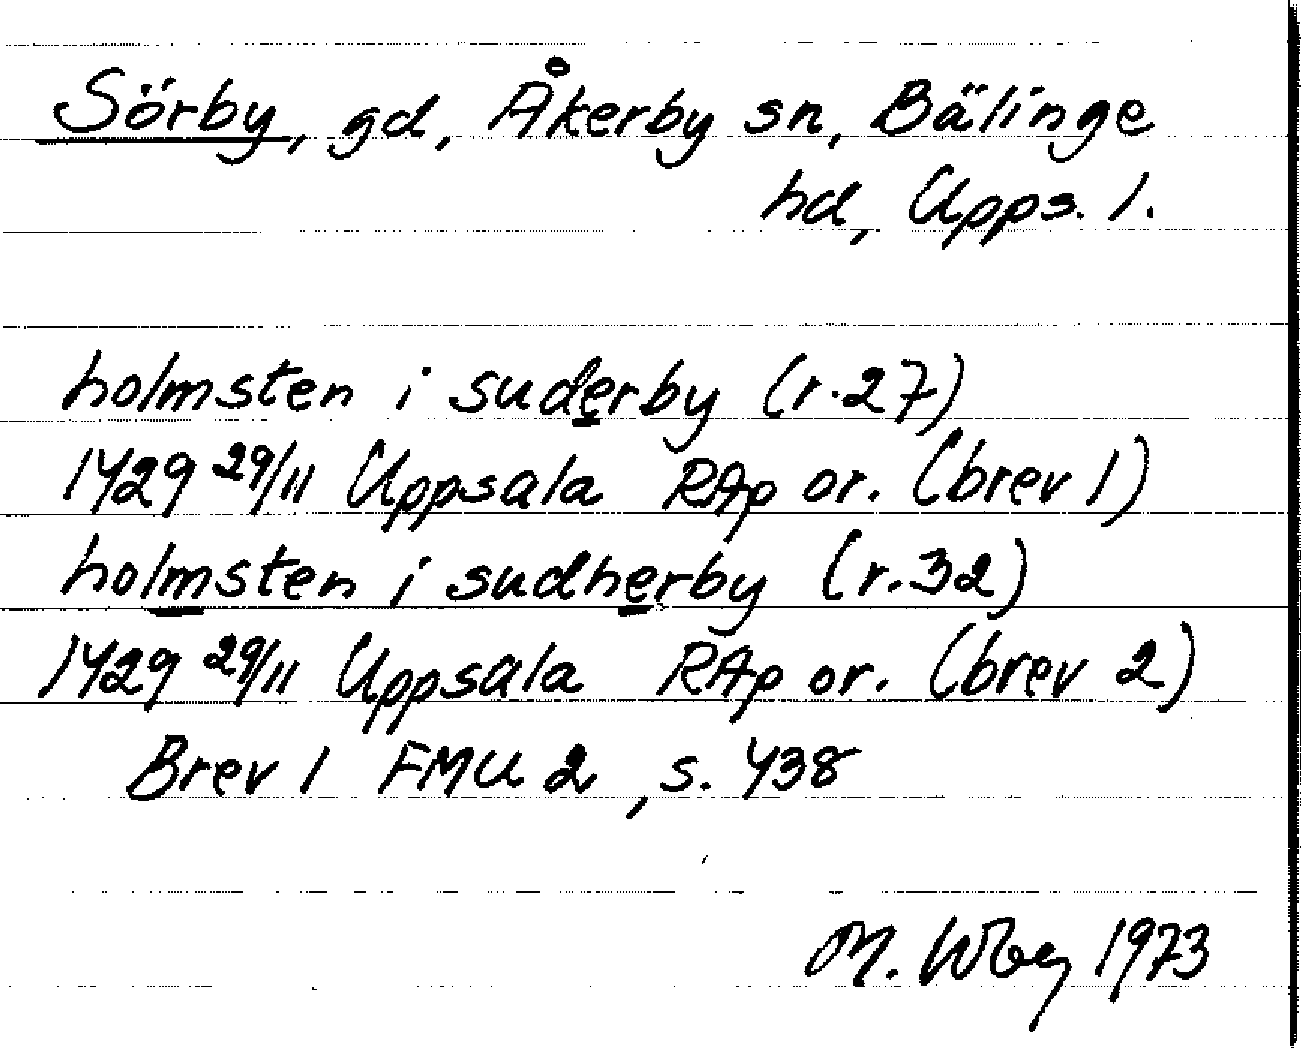 Sörby, gd, Åkerby sn, Bälinge
hd, Upps. l.
holmsten i suderby (r.27)
1429 29/11 Uppsala RAp or. (brev 1)
holmsten i sudherby (r.32)
1429 29/11 Uppsala RAp or. (brev 2)
Brev 1 FMU 2, s. 438
M. Wbg 1973